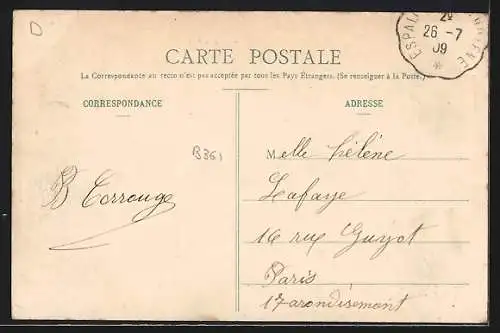 D
2e
26 -7
09
CARTE POSTALE
La Correspondance au recto n'est pas acceptée par tous les Pays Étrangers. (Se renseigner à la Poste.)
CORRESPONDANCE
ADRESSE
B361
Melle hélène
Lafaye
B Corrouge
16 rue Guyot
Paris
17 arondisement